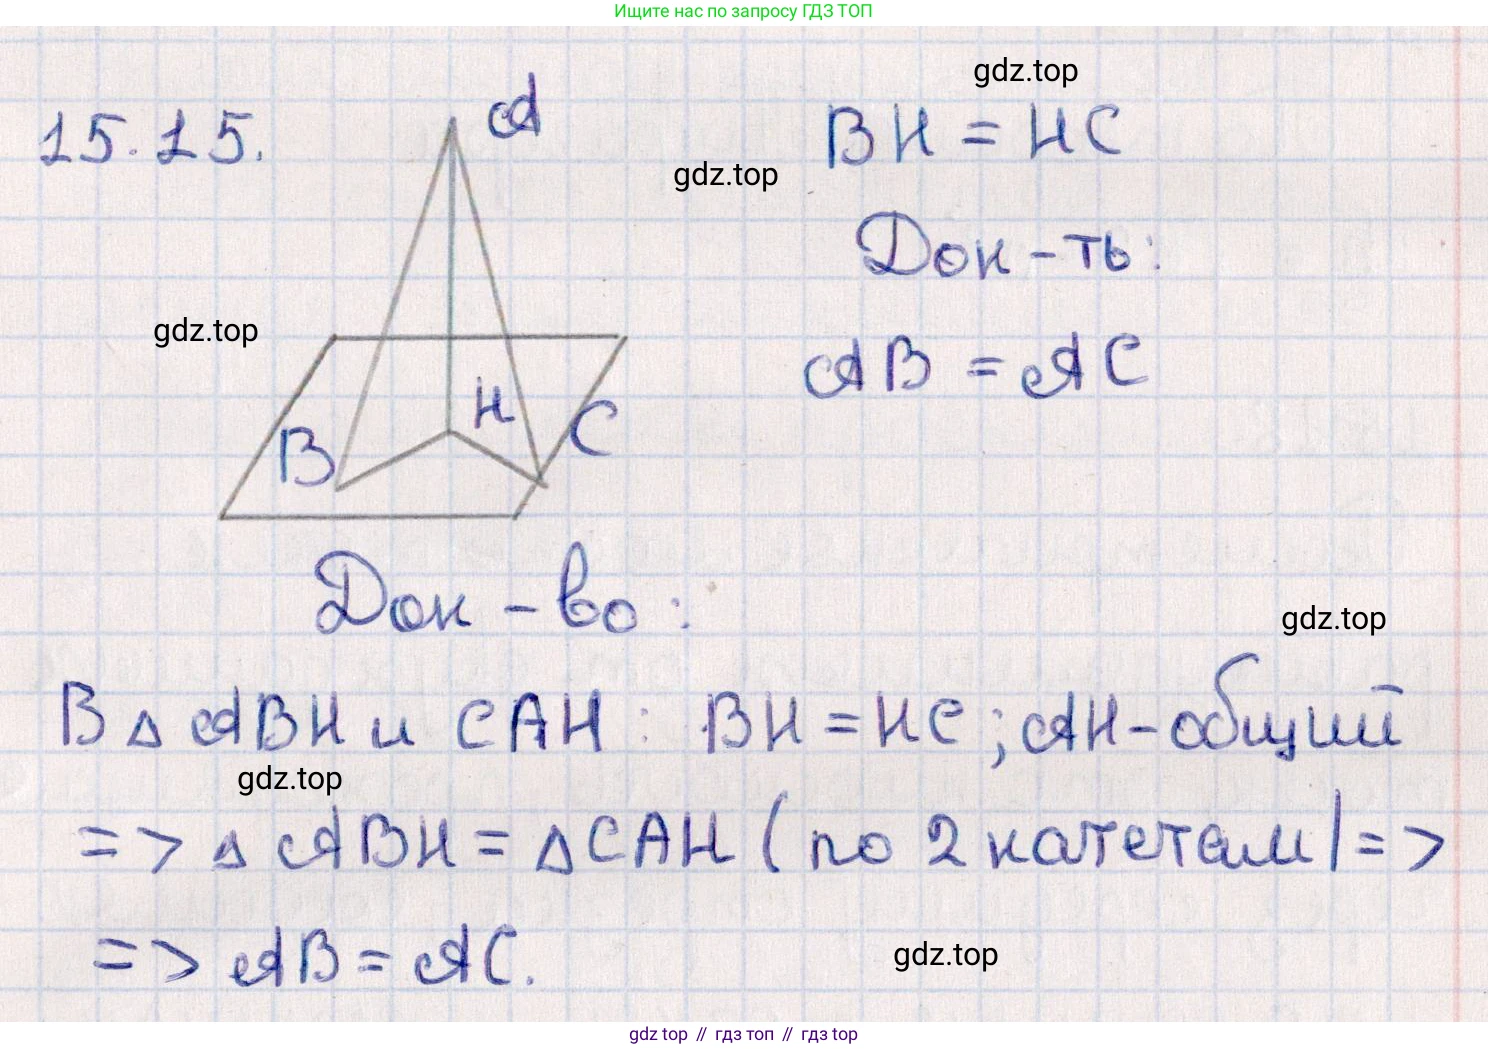 Ищите нас по запросу ГДЗ ТОП
gdz.top
15.15.
A
BH = HC
gdz.top
Док-ть:
gdz.top
AB = AC
H
B
C
Док-во:
gdz.top
В △ ABH и CAH: BH = HC; AH - общий
gdz.top
=> △ ABH = △ CAH (по 2 катетам) =>
=> AB = AC.
gdz.top
gdz top // гдз топ // гдз top